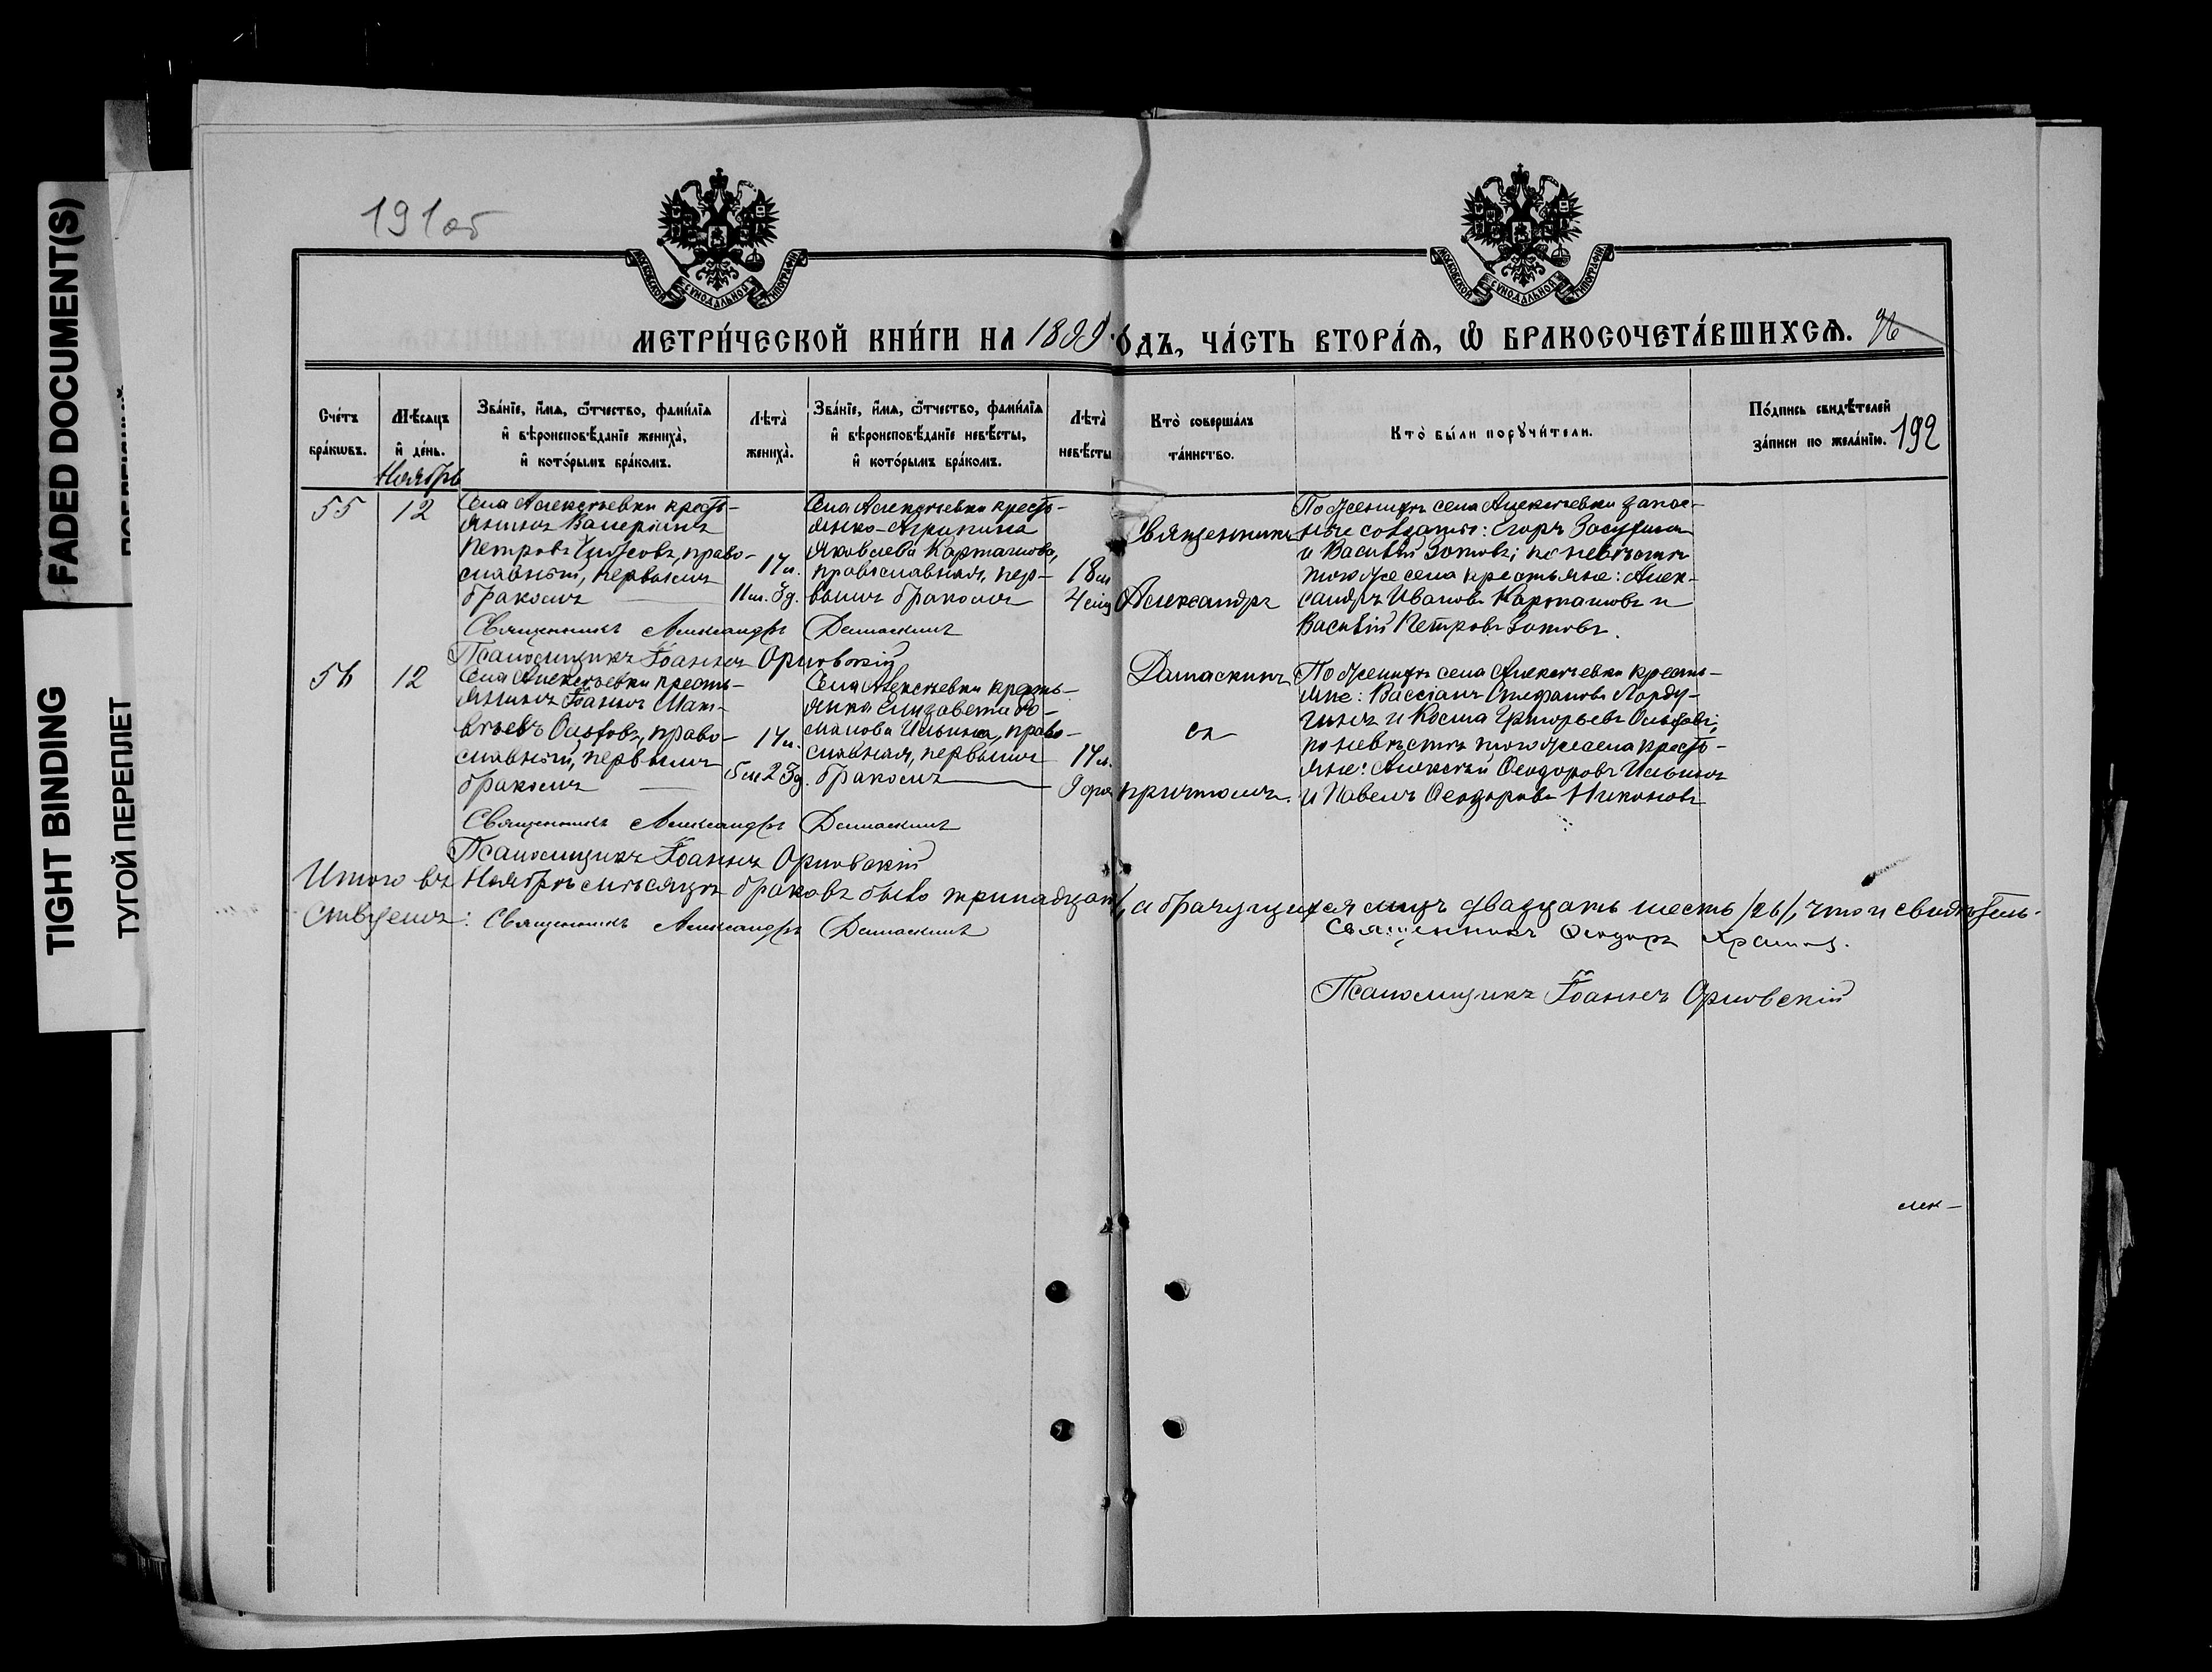 FADED DOCUMENT(S)
TIGHT BINDING
ТУГОЙ ПЕРЕПЛЕТ
191об
МОСКОВСКОЙ СѴНОДАЛЬНОЙ ТИПОГРАФІИ
МОСКОВСКОЙ СѴНОДАЛЬНОЙ ТИПОГРАФІИ
МЕТРИ́ЧЕСКОЙ КНИ́ГИ НА 1899 го́дъ, ЧА́СТЬ ВТОРА́Ѧ, Ѽ БРАКОСОЧЕТА́ВШИХСѦ. 96
192
Сче́тъ бра́кѡвъ.
Мѣ́сяцъ и҆ де́нь.
Зва́нїе, и҆́мѧ, ѻ҆́тчество, фами́лїѧ
и҆ вѣроисповѣ́данїе жениха̀,
и҆ кото́рымъ бра́комъ.
Лѣта̀ жениха̀.
Зва́нїе, и҆́мѧ, ѻ҆́тчество, фами́лїѧ
и҆ вѣроисповѣ́данїе невѣ́сты,
и҆ кото́рымъ бра́комъ.
Лѣта̀ невѣ́сты
Кто̀ соверша́лъ та́инство.
Кто̀ бы́ли порꙋчи́тели.
По́дпись свидѣ́телей за́писи по жела́нїю.
Ноябрь
55
12
Села Алексѣевки кресть-
янинъ Валеріанъ
Петровъ, право-
славный, первымъ
бракомъ
17 л.
11 м. 3 д.
Села Алексѣевки кресть-
янка Агрипина
Яковлева Карташова,
православная, пер-
вымъ бракомъ
18 л.
4 мѣс
Священникъ
Александръ
Дамаскинъ
съ
причтомъ.
По женихѣ села Алексѣевки запас-
ные солдаты: Егоръ
и Василій Зотовъ; по невѣстѣ
того же села крестьяне: Алек-
сандръ Ивановъ Карташовъ и
Василій Петровъ Зотовъ.
Священникъ Александръ Дамаскинъ
Псаломщикъ Іоаннъ Орловскій
56
12
Села Алексѣевки кресть-
янинъ Іоаннъ Мат-
вѣевъ, право-
славный, первымъ
бракомъ
17 л.
5 м. 23 д.
Села Алексѣевки кресть-
янка Елизавета Ро-
манова Ильина, право-
славная, первымъ
бракомъ
17 л.
По женихѣ села Алексѣевки кресть-
яне: Вассіанъ Стефановъ
и Косма Григорьевъ
по невѣстѣ того же села кресть-
яне: Алексѣй Ѳеодоровъ Ильинъ
и Павелъ Ѳеодоровъ Никоновъ
Священникъ Александръ Дамаскинъ
Псаломщикъ Іоаннъ Орловскій
Итого въ Ноябрѣ мѣсяцѣ браковъ было тринадцать, а брачущихся лицъ двадцать шесть /26/, что и свидѣтель-
ствуемъ: Священникъ Александръ Дамаскинъ
Священникъ Ѳеодоръ
Псаломщикъ Іоаннъ Орловскій